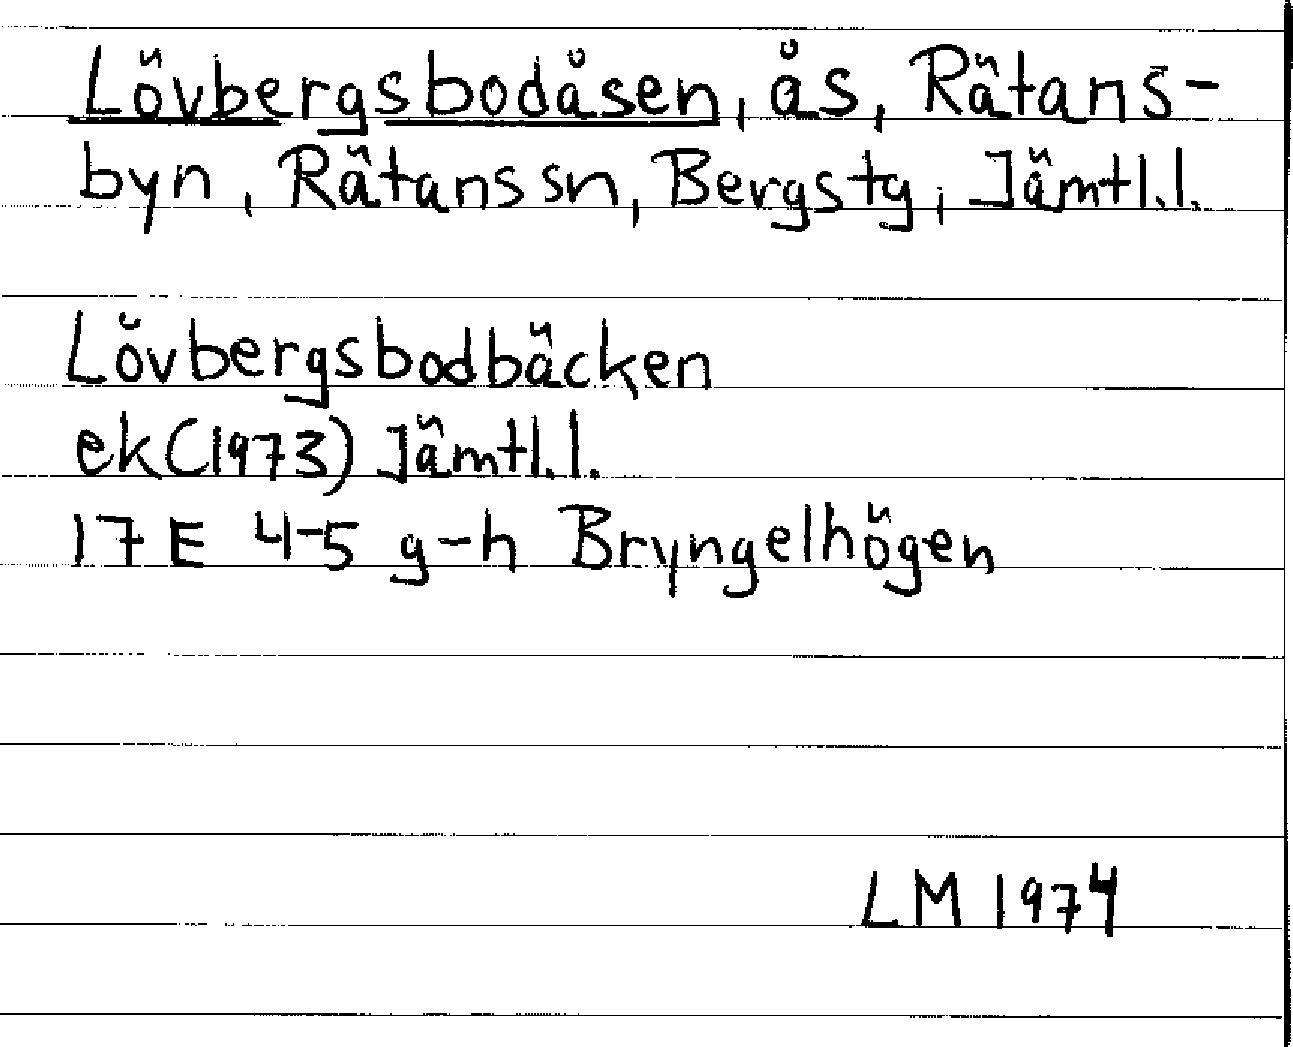 Lövbergsbodåsen, ås, Rätans-
byn, Rätans sn, Bergs tg, Jämtl.l.
Lövbergsbodbäcken
ek (1973) Jämtl.l.
17 E 4-5 g-h Bryngelhögen
LM 1974